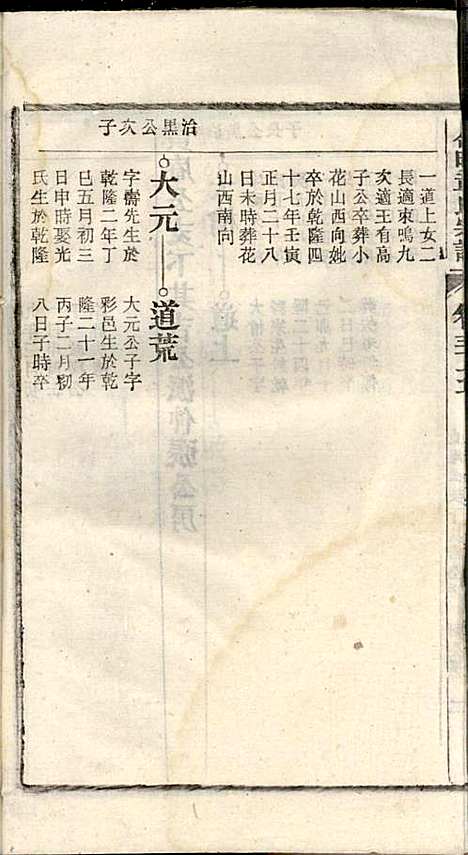 治黑公次子
一道上女二
長適東鳴九
次適王有高
子公卒葬小
花山西向她
卒於乾隆四
十七年壬寅
正月二十八
日未時葬花
山西南向
大元
道荒
字壽先生於
乾隆二年丁
巳五月初三
日申時娶光
氏生於乾隆
大元公子字
彩邑生於乾
隆二十一年
丙子二月初
八日子時卒